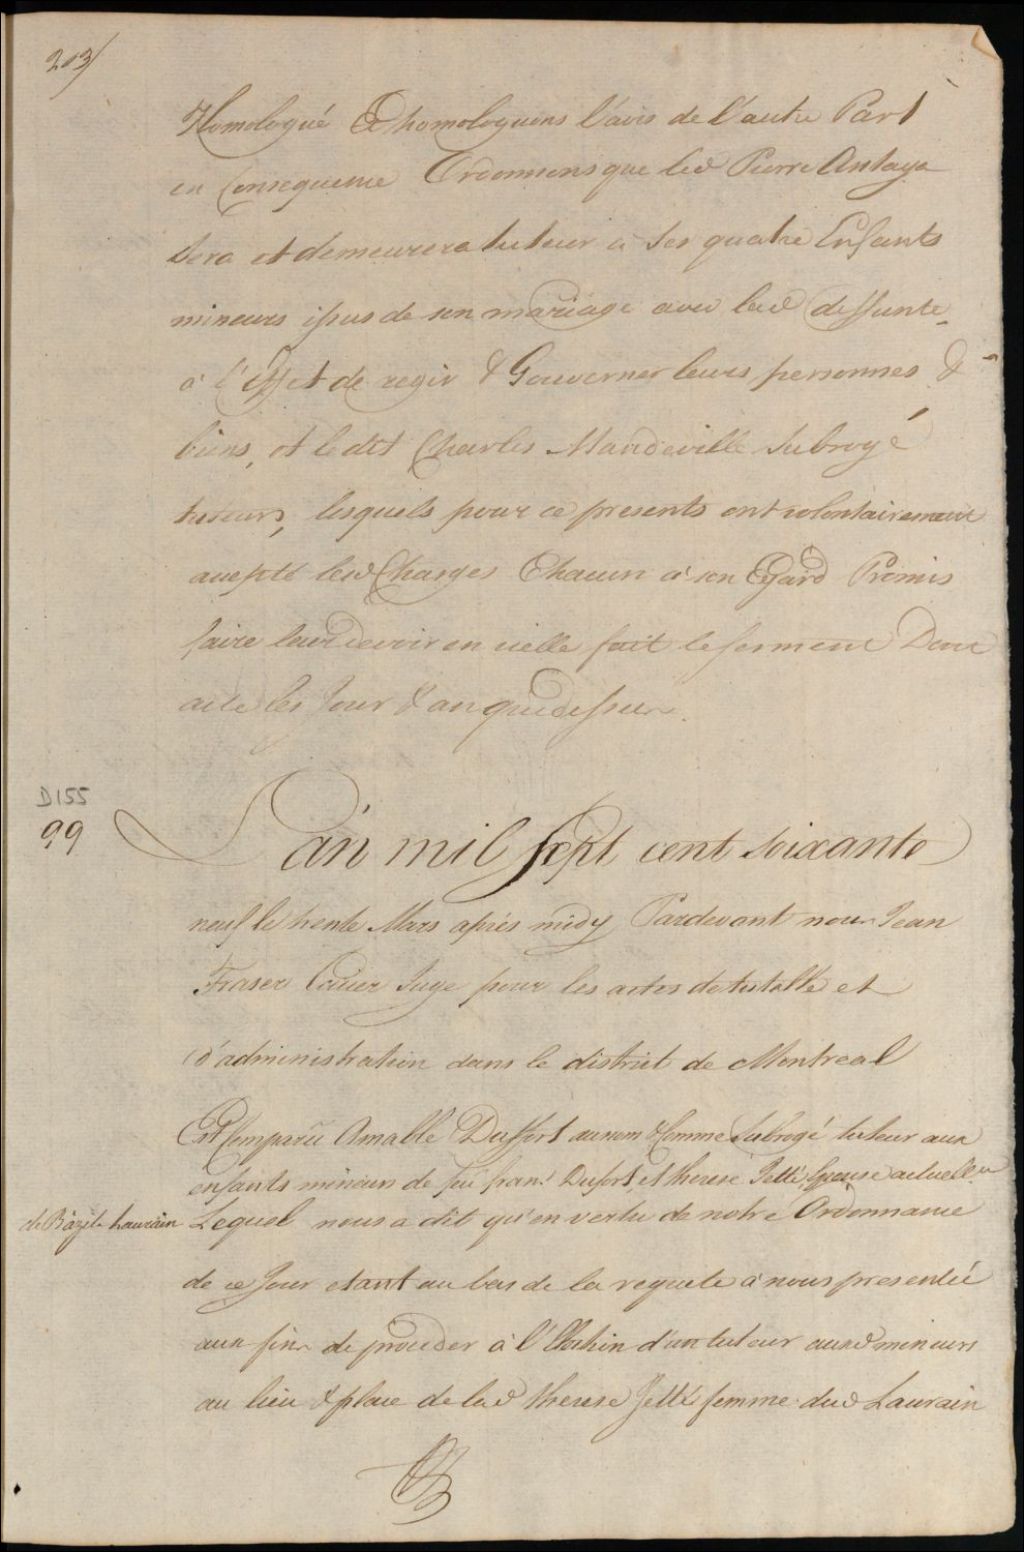 203/
Homologué & homologuons l'avis de l'autre Part
en Consequence Ordonnons que led Pierre Antaya
sera et demeurera tuteur à ses quatre Enfants
mineurs issus de son mariage avec lad deffunte
à l'effet de regir & Gouverner leurs personnes &
biens, et ledit Charles Mandeville subrogé
tuteur, lesquels pour ce presents ont volontairement
accepté lesd Charges Chacun à son Egard Promis
faire leur devoir en icelle fait le serment Dont
acte les Jour & an que dessus.
D155
99
L'an mil sept cent soixante
neuf le trente Mars aprés midy Pardevant nous Jean
Fraser Ecuier Juge pour les actes de tutelle et
d'administration dans le district de Montreal
Est Comparu Amable Duffort au nom & Comme Subrogé tuteur aux
enfants mineurs de feu fran: Dufort, et therese Jetté Epouse actuelle
de Bazile Laurain Lequel nous a dit qu'en vertu de notre Ordonnance
de ce Jour etant au bas de la requete à nous presentée
aux fins de proceder à l'Election d'un tuteur auxd mineurs
au lieu & place de lad therese Jetté femme dud Laurain